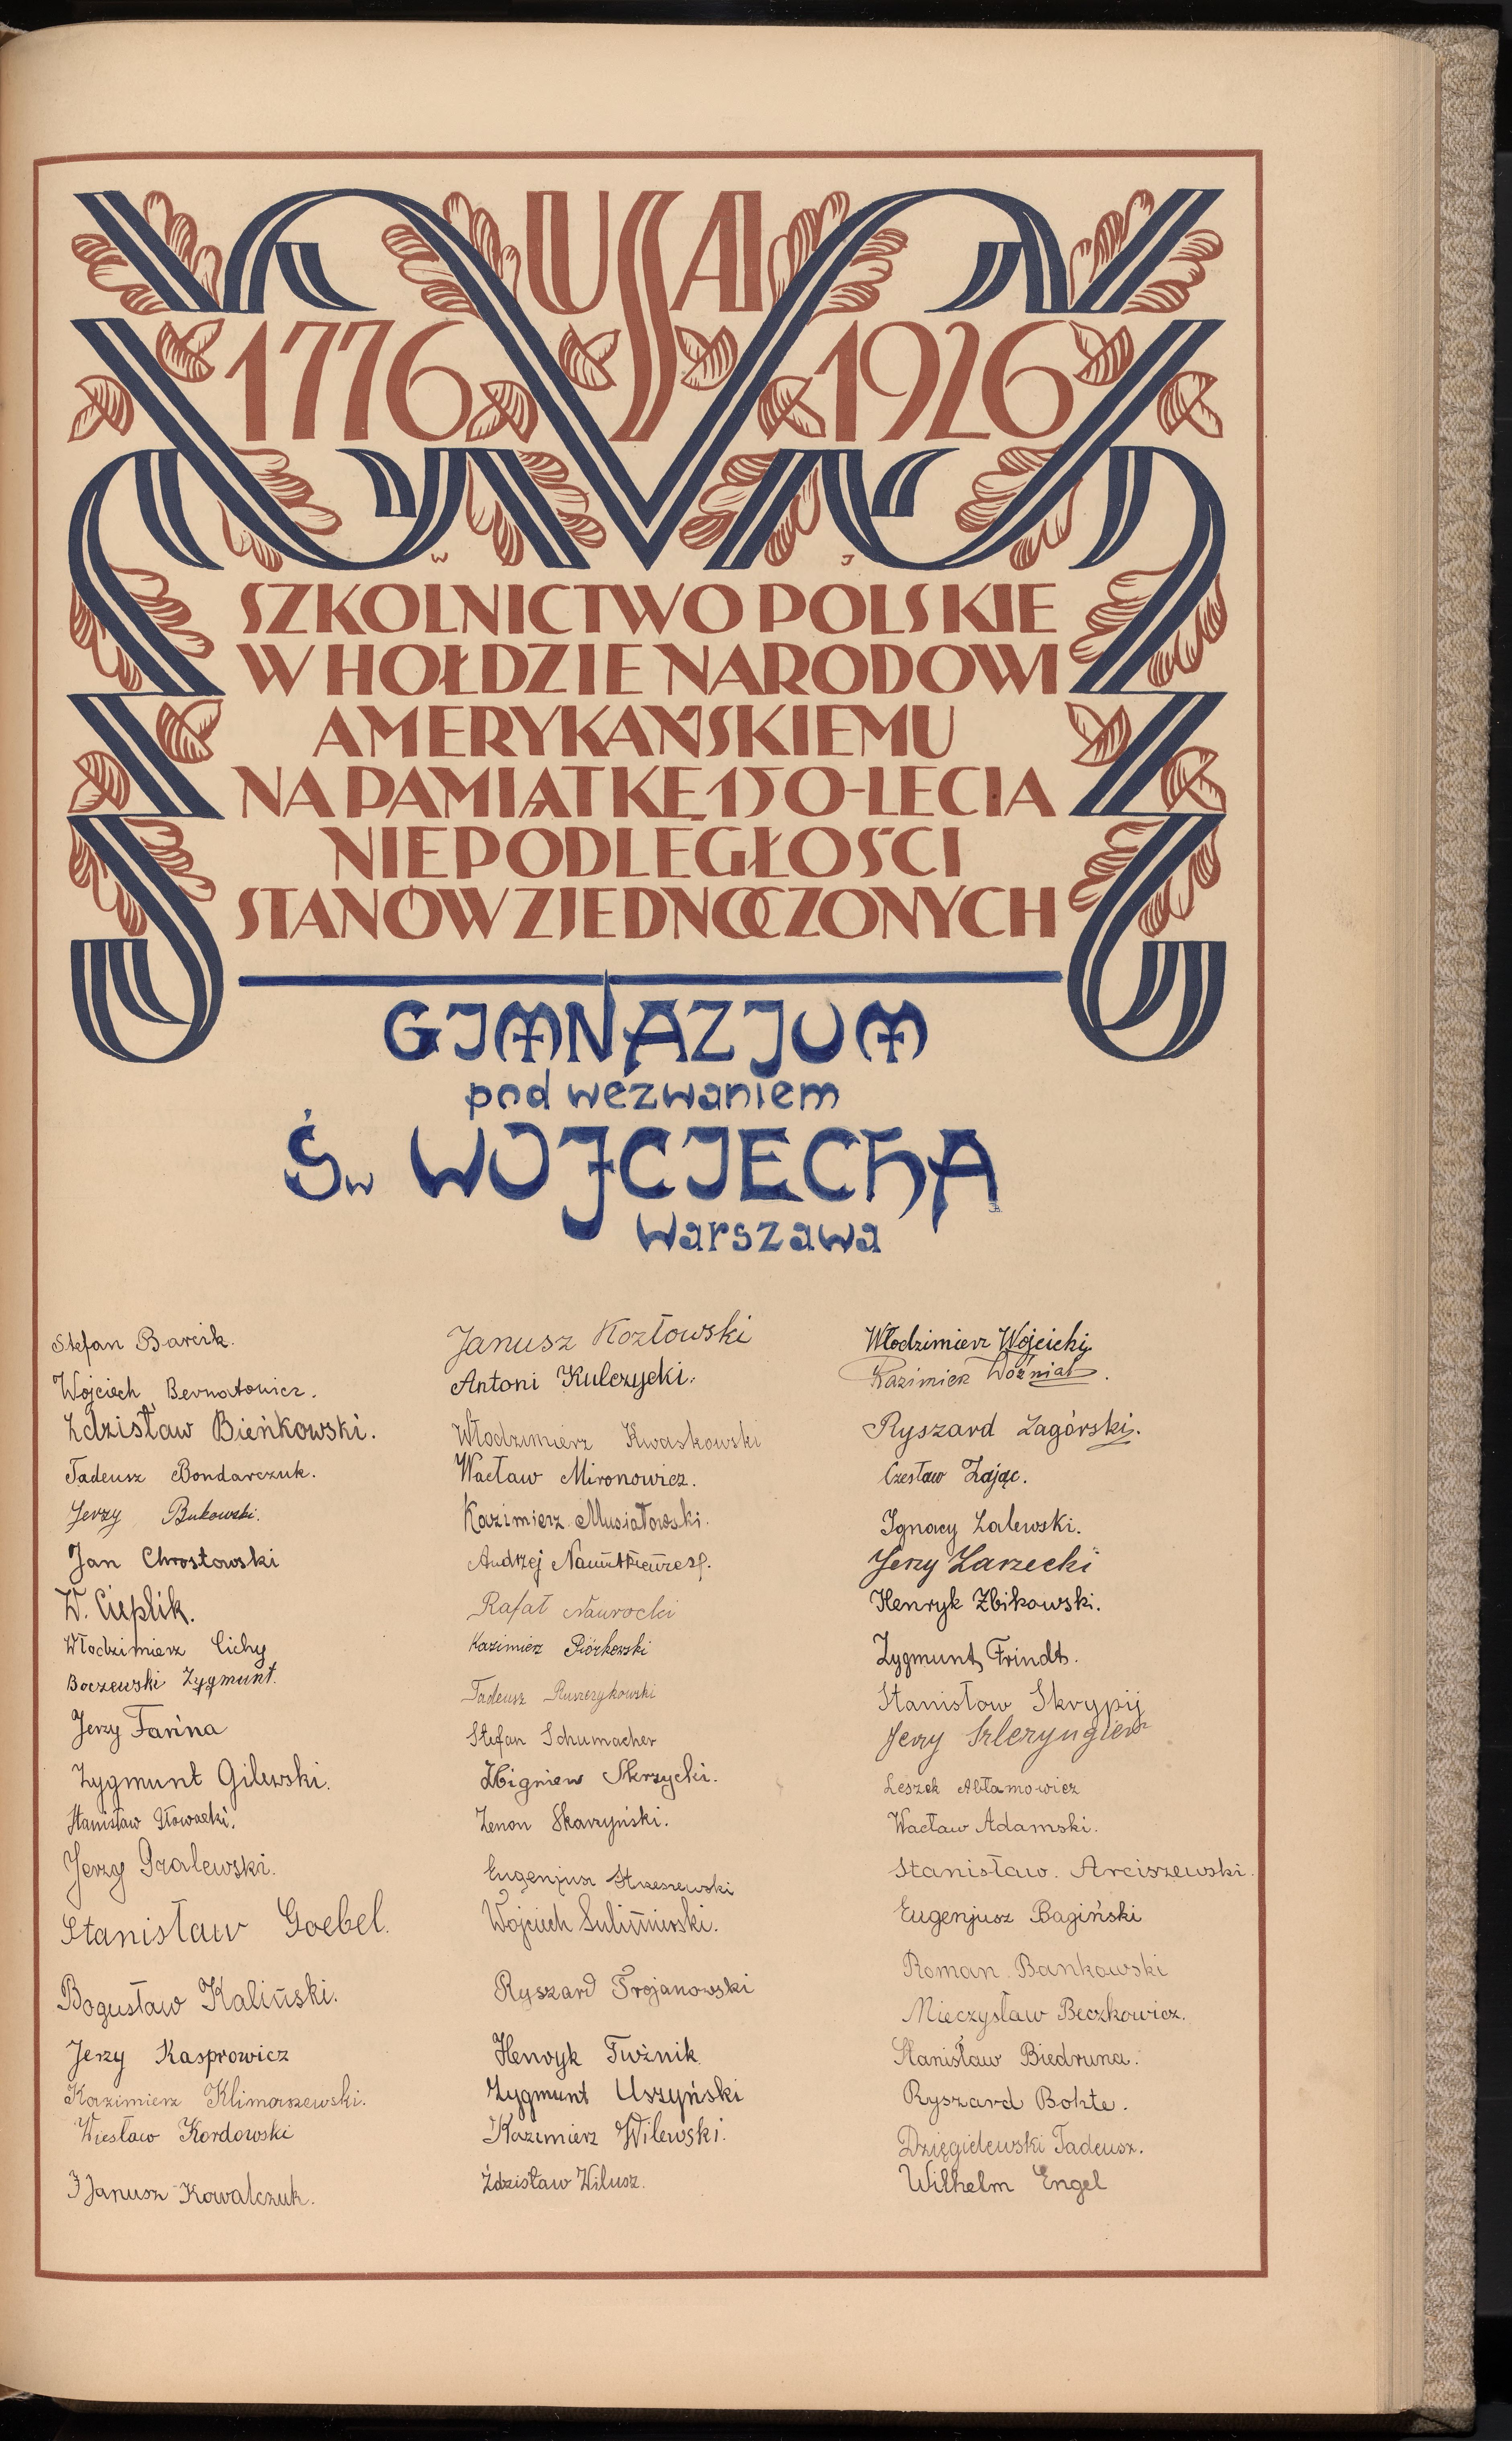 USA
1776 1926
W J
SZKOLNICTWO POLSKIE
W HOŁDZIE NARODOWI
AMERYKAŃSKIEMU
NA PAMIĄTKĘ 150-LECIA
NIEPODLEGŁOŚCI
STANÓW ZJEDNOCZONYCH
GJMNAZJUM
pod wezwaniem
Św WOJCJECHA
Warszawa
Stefan Barcik.
Wojciech Bernatowicz.
Zdzisław Bieńkowski.
Tadeusz Bondarczuk.
Jerzy Bukowski.
Jan Chrostowski
W. Cieplik.
Włodzimierz Cichy
Boczewski Zygmunt.
Jerzy Farina
Zygmunt Gilewski.
Stanisław Głowacki.
Jerzy Gralewski.
Stanisław Goebel.
Bogusław Kaliński.
Jerzy Kasprowicz
Kazimierz Klimaszewski.
Wiesław Kordowski
Janusz Kowalczuk.
Janusz Kozłowski
Antoni Kulczycki.
Włodzimierz Kwaskowski
Wacław Mironowicz.
Kazimierz Musiałowski.
Andrzej
Rafał Nawrocki
Kazimierz Piórkowski
Tadeusz Ruszczykowski
Stefan Schumacher
Zbigniew Skrzycki.
Zenon Skarzyński.
Eugenjusz Strzeszewski
Wojciech Sulimierski.
Ryszard Trojanowski
Henryk Twżnik
Zygmunt Uszyński
Kazimierz Wilewski.
Zdzisław Wilusz.
Włodzimierz Wojcicki
Kazimierz Woźniak.
Ryszard Zagórski.
Czesław Zając.
Ignacy Zalewski.
Jerzy Zarzecki
Henryk Zbikowski.
Zygmunt Frindt.
Stanisław Skrypij
Jerzy
Leszek Abłamowicz
Wacław Adamski.
Stanisław. Arciszewski.
Eugenjusz Bagiński
Roman Bankowski
Mieczysław Beczkowicz.
Stanisław Biedruna.
Ryszard Bohte.
Dzięgielewski Tadeusz.
Wilhelm Engel